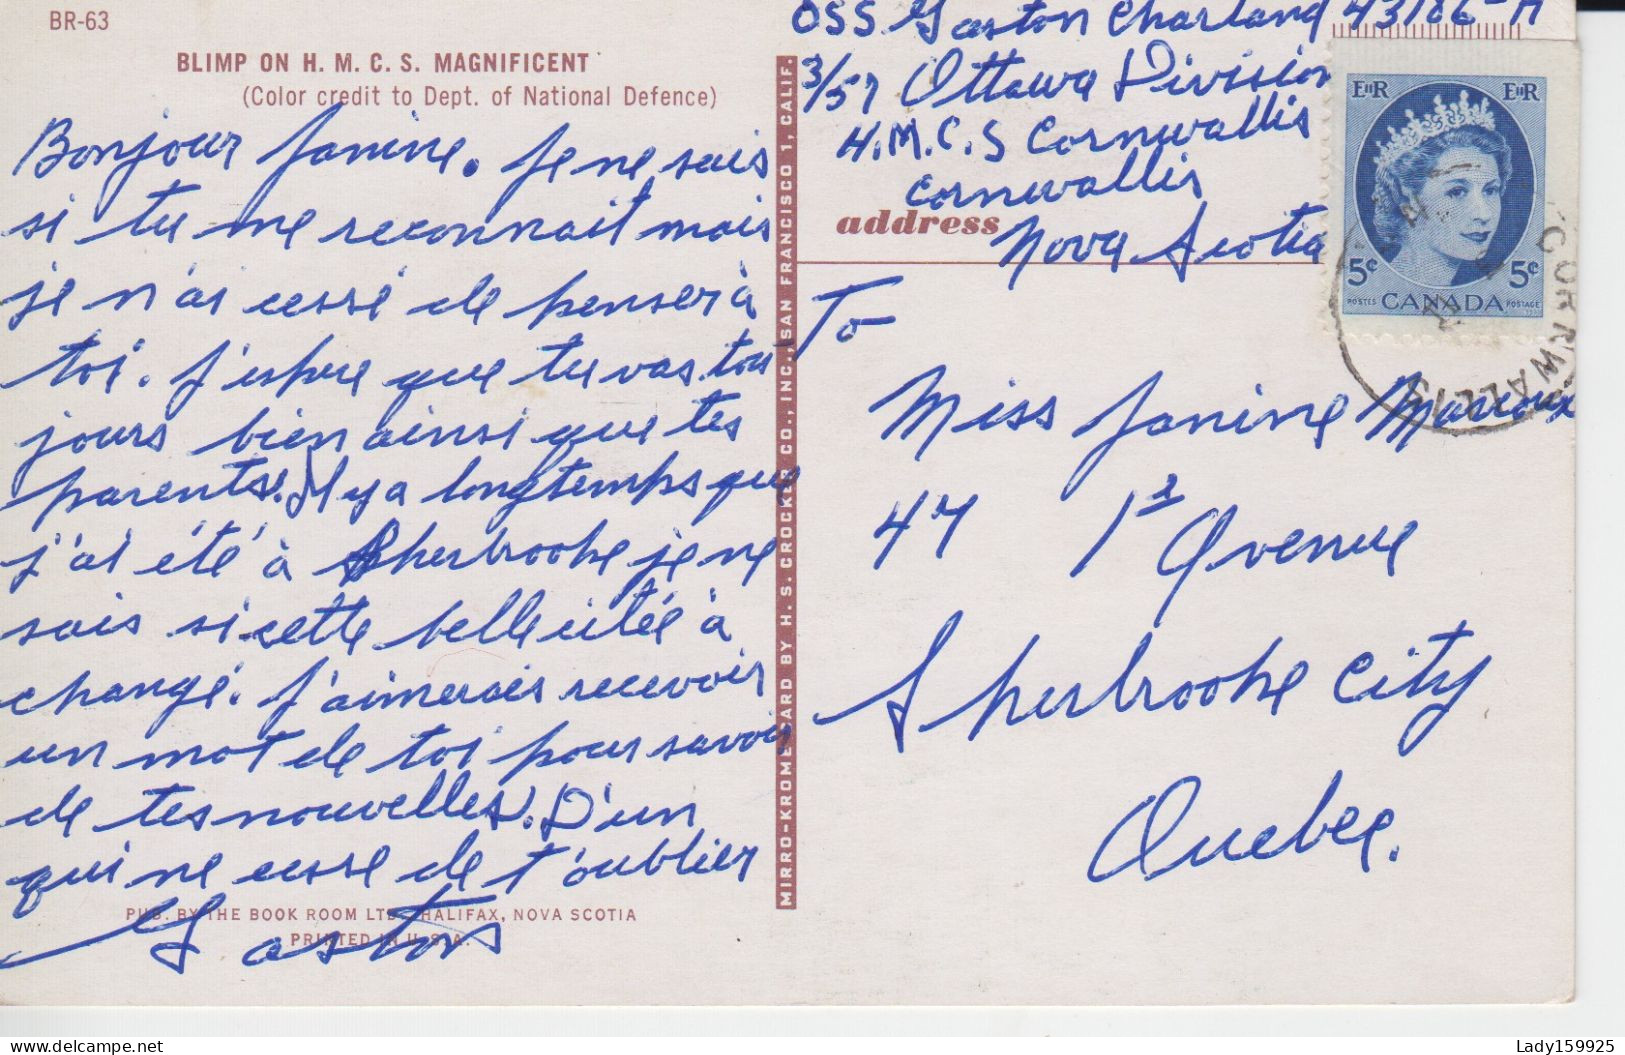 BR-63
BLIMP ON H. M. C. S. MAGNIFICENT
(Color credit to Dept. of National Defence)
Bonjour Janine. Je ne sais
si tu me reconnait mais
je n'ai cessé de penser à
toi. J'espère que tu vas tou
jours bien ainsi que tes
parents. Il y a longtemps que
j'ai été à Sherbrooke je ne
sais si cette belle citée à
changé. J'aimerais recevoir
un mot de toi pour savoir
de tes nouvelles. D'un
qui ne cesse de t'oublier
Gaston
PUB. BY THE BOOK ROOM LTD., HALIFAX, NOVA SCOTIA
PRINTED IN U. S. A.
MIRRO-KROME CARD BY H. S. CROCKER CO., INC., SAN FRANCISCO 1, CALIF.
OSS. Gaston Charland 43186-H
3/57 Ottawa Division
H.M.C.S Cornwallis
Cornwallis
address
Nova Scotia
To
Miss Janine
47 1 Avenue
Sherbrooke City
Quebec.
EIIR EIIR
5¢ 5¢
POSTES CANADA POSTAGE
CORNWALLIS
Lady159925
delcampe.net